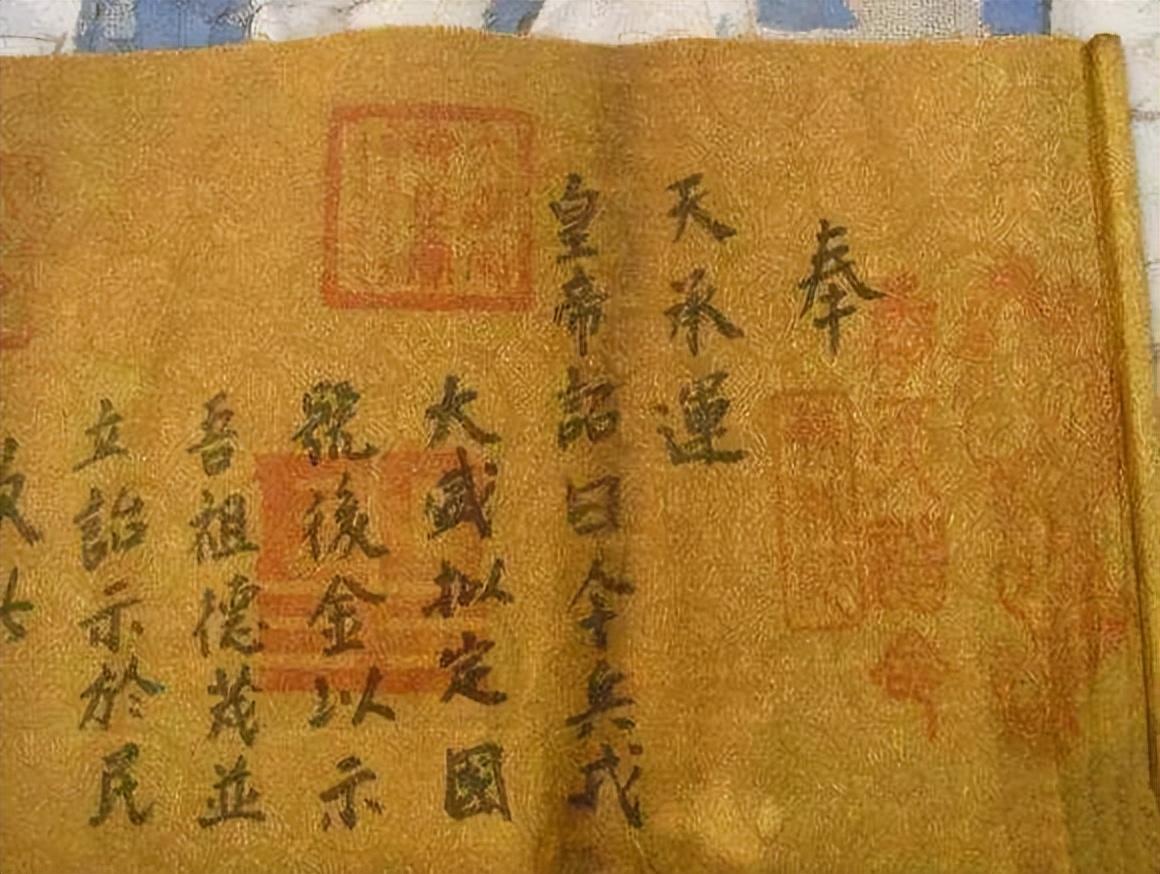 奉
天承運
皇帝詔曰今兵戎
大盛拟定國
號後金以示
吾祖德茂並
立詔示於民